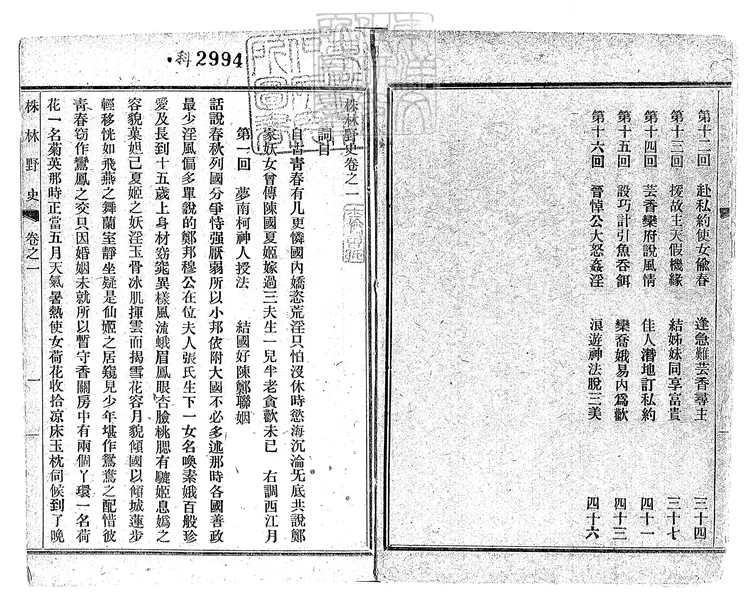 第十二回 赴私約使女偸春 逢急難芸香尋主 三十四
第十三回 援故主天假機緣 結姊妹同享富貴 三十七
第十四回 芸香欒府說風情 佳人潛地訂私約 四十一
第十五回 設巧計引魚吞餌 欒喬娥易內爲歡 四十三
第十六回 晉悼公大怒姦淫 浪遊神法脫三美 四十六
科 2994
株林野史卷之一
詞曰
自古靑春有几更憐國內嬌恣荒淫只怕沒休時慾海沉淪无底共說鄭
家妖女曾傳陳國夏姬嫁過三夫生一兒半老貪歡未已 右調西江月
第一回 夢南柯神人授法 結國好陳鄭聯姻
話說春秋列國分爭恃强厭弱所以小邦依附大國不必多述那時各國善政
最少淫風偏多單說的鄭邦穆公在位夫人張氏生下一女名喚素娥百般珍
愛及長到十五歲上身材窈窕異樣風流蛾眉鳳眼杏臉桃腮有驪姬息嬀之
容貌葉妲己夏姬之妖淫玉骨冰肌揮雲而揭雪花容月貌傾國以傾城蓮步
輕移恍如飛燕之舞蘭室靜坐疑是仙姬之居窺見少年堪作鴛鴦之配惜彼
靑春窃作鸞鳳之交只因婚姻未就所以暫守香閨房中有兩個丫環一名荷
花一名菊英那時正當五月天氣暑熱使女荷花收拾凉床玉枕伺候到了晚
株林野史 卷之一 一